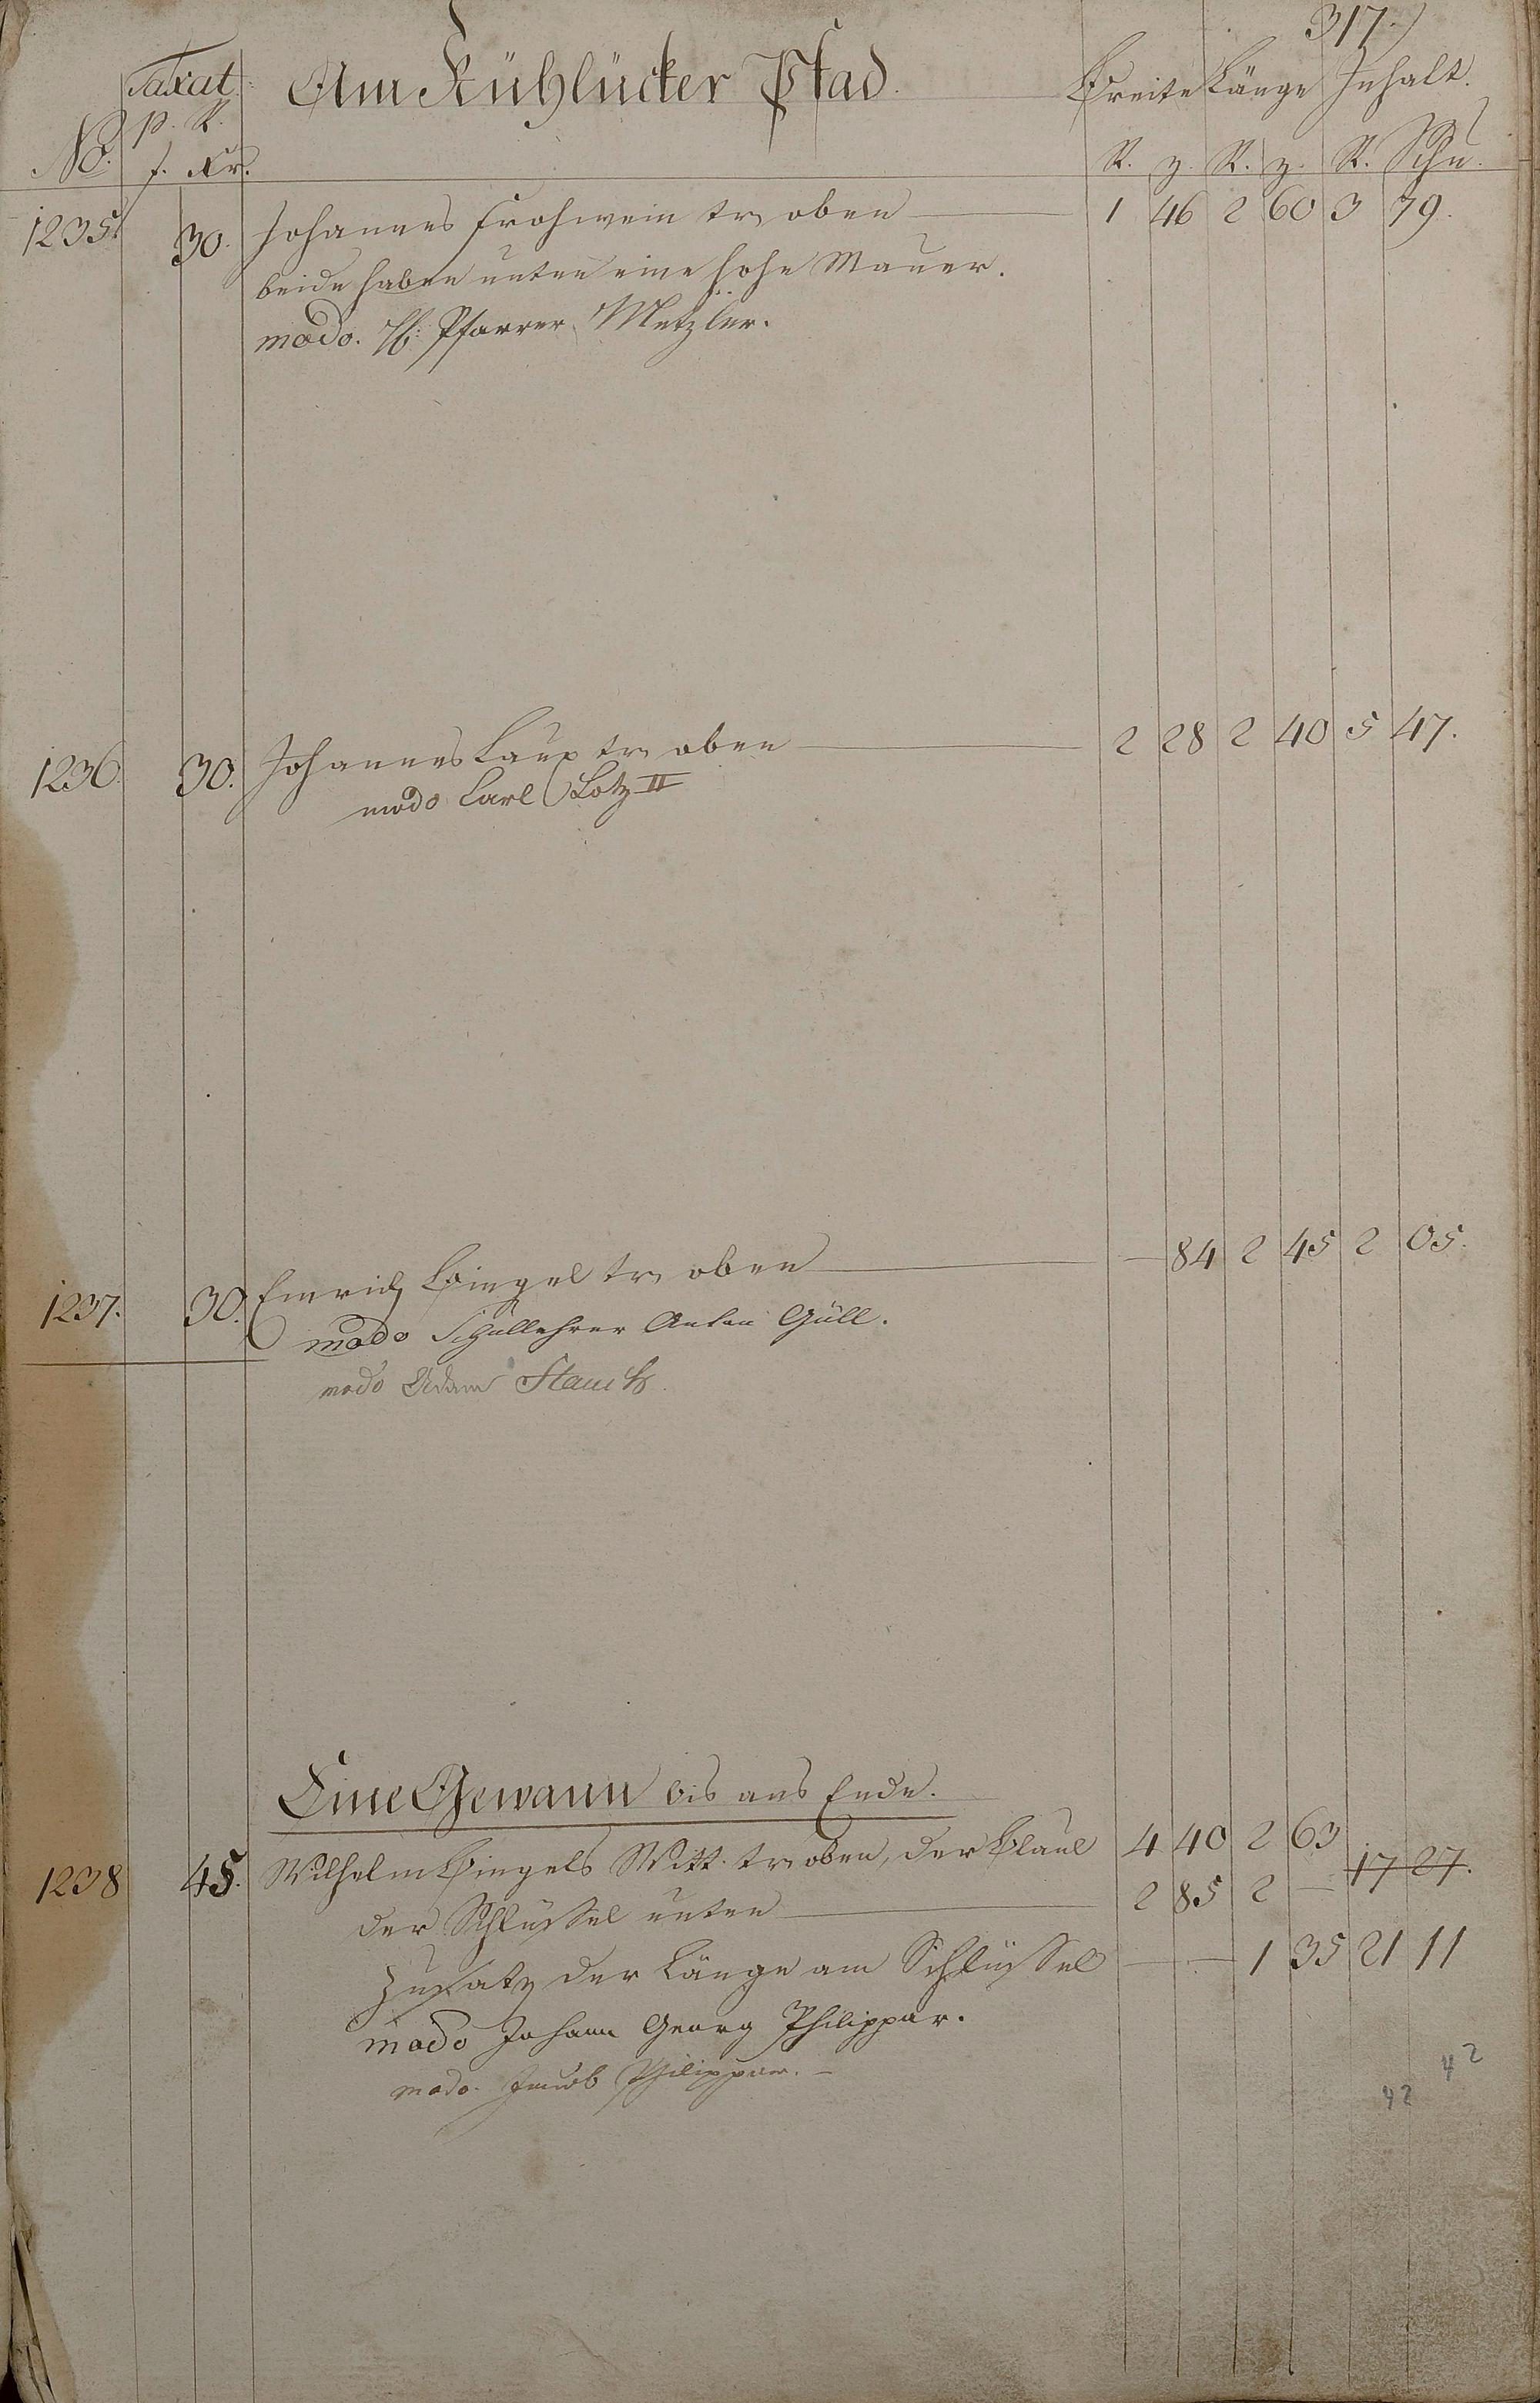 317.
Taxat. Am Kühlücker Pfad. Breite Länge Inhalt.
p. R.
No. f. Xr. R. z. R. z. R. Schu.
1235. 30. Johannes Frohwein tr. oben 1 46 2 60 3 79.
beide haben unten eine hohe Mauer.
modo. H. Pfarrer Metzler.
1236. 30. Johannes Laux tr. oben 2 28 2 40 5 47.
modo Carl Lotz II
1237. 30. Emrich Bingel tr. oben — 84 2 45 2 05.
modo Schullehrer Anton Güll.
modo Adam
Eine Gewann bis ans Ende.
1238 45. Wilhelm Bingels Witt. tr. oben, der 4 40 2 63
der Schlüssel unten 2 85 2 — 17 27.
Zusatz der Länge am Schlüssel — — 1 35 21 11
modo Johann Georg Philippar.
modo. Jacob Philippar. –
42
42